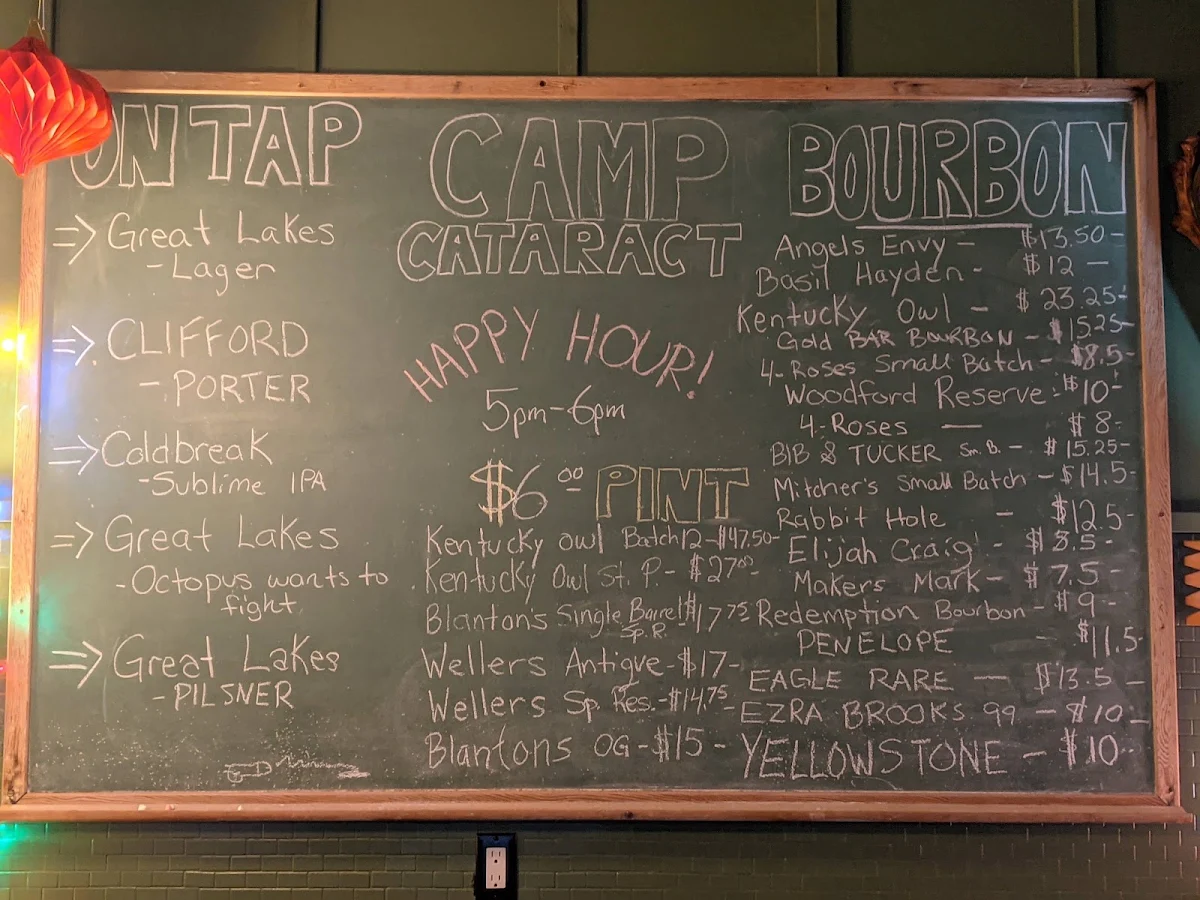 ON TAP
⇒ Great Lakes
- Lager
⇒ CLIFFORD
- PORTER
⇒ Coldbreak
- Sublime IPA
⇒ Great Lakes
- Octopus wants to
fight
⇒ Great Lakes
- PILSNER
CAMP
CATARACT
HAPPY HOUR!
5pm-6pm
$6.00 PINT
Kentucky owl Batch 12 - $47.50-
Kentucky Owl St. P. - $27.00-
Blanton's Single Barel $17.75
Sp. R.
Wellers Antique - $17-
Wellers Sp. Res. - $14.75-
Blantons OG - $15 -
BOURBON
Angels Envy - $13.50-
Basil Hayden - $12 -
Kentucky Owl - $23.25-
Gold BAR BOURBON - $15.25-
4-Roses Small Batch - $8.5-
Woodford Reserve - $10-
4-Roses - $8-
BIB & TUCKER Sm. B. - $15.25-
Mitcher's Small Batch - $14.5-
Rabbit Hole - $12.5-
Elijah Craig - $8.5-
Makers Mark - $7.5-
Redemption Bourbon - $9-
PENELOPE - $11.5-
EAGLE RARE - $13.5-
EZRA BROOKS 99 - $10-
YELLOWSTONE - $10-